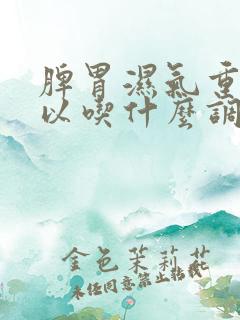 脾胃濕氣重
以喫什麼調
金色茉莉花
未經同意禁止轉載